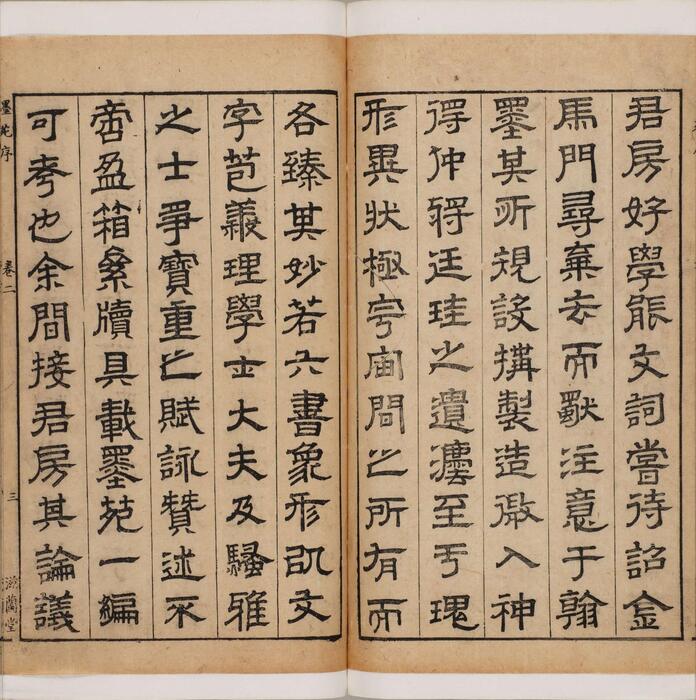 君房好學能文詞嘗待詔金
馬門尋棄去而注意于翰
墨其所規設搆製造微入神
得仲將廷珪之遺灋至于瑰
形異狀極宇宙間之所有而
各臻其妙若六書象形文
字苞義理學士大夫及騷雅
之士爭寶重之賦詠贊述不
啻盈箱絫牘具載墨苑一編
可考也余間接君房其論議
墨苑序 卷二 三 滋蘭堂